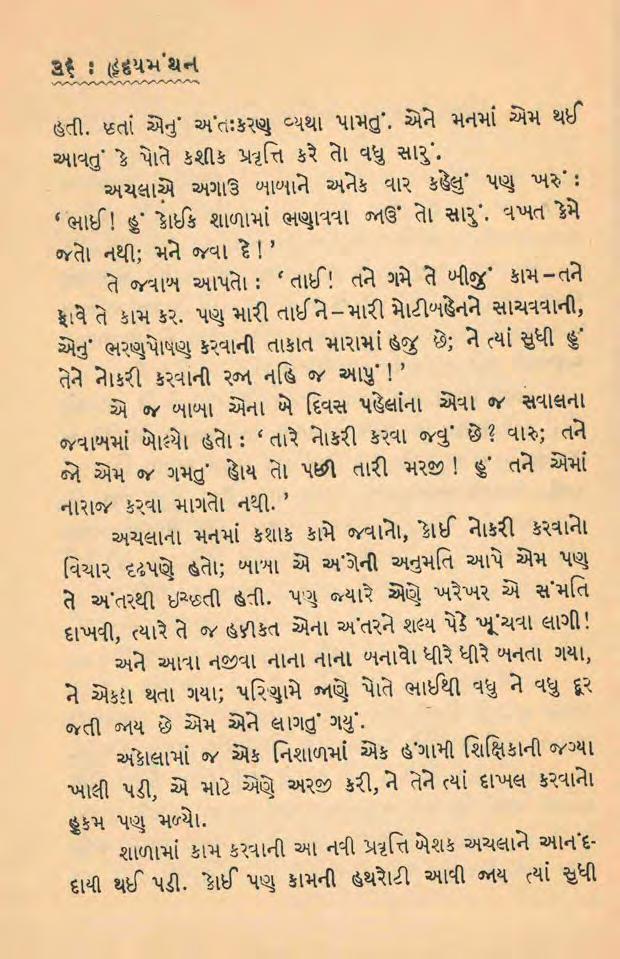 ૩૬ : હૃદયમંથન
હતી. છતાં એનું અંતઃકરણ વ્યથા પામતું. એને મનમાં એમ થઈ
આવતું કે પોતે કશીક પ્રવૃત્તિ કરે તો વધુ સારું.
અચલાએ અગાઉ બાબાને અનેક વાર કહેલું પણ ખરું :
‘ભાઈ! હું કોઈક શાળામાં ભણાવવા જાઉં તો સારું. વખત કેમે
જતો નથી; મને જવા દે!’
તે જવાબ આપતો : ‘તાઈ! તને ગમે તે બીજું કામ–તને
ફાવે તે કામ કર. પણ મારી તાઈને–મારી મોટીબહેનને સાચવવાની,
એનું ભરણપોષણ કરવાની તાકાત મારામાં હજુ છે; ને ત્યાં સુધી હું
તેને નોકરી કરવાની રજા નહિ જ આપું!’
એ જ બાબા એના બે દિવસ પહેલાંના એવા જ સવાલના
જવાબમાં બોલ્યો હતો : ‘તારે નોકરી કરવા જવું છે? વારુ; તને
જો એમ જ ગમતું હોય તો પછી તારી મરજી! હું તને એમાં
નારાજ કરવા માગતો નથી.’
અચલાના મનમાં કશાક કામે જવાનો, કોઈ નોકરી કરવાનો
વિચાર દૃઢપણે હતો; બાબા એ અંગેની અનુમતિ આપે એમ પણ
તે અંતરથી ઇચ્છતી હતી. પણ જ્યારે એણે ખરેખર એ સંમતિ
દાખવી, ત્યારે તે જ હકીકત એના અંતરને શલ્ય પેઠે ખૂંચવા લાગી!
અને આવા નજીવા નાના નાના બનાવો ધીરે ધીરે બનતા ગયા,
ને એકઠા થતા ગયા; પરિણામે જાણે પોતે ભાઈથી વધુ ને વધુ દૂર
જતી જાય છે એમ એને લાગતું ગયું.
અકોલામાં જ એક નિશાળમાં એક હંગામી શિક્ષિકાની જગ્યા
ખાલી પડી, એ માટે એણે અરજી કરી, ને તેને ત્યાં દાખલ કરવાનો
હુકમ પણ મળ્યો.
શાળામાં કામ કરવાની આ નવી પ્રવૃત્તિ બેશક અચલાને આનંદ-
દાયી થઈ પડી. કોઈ પણ કામની હથરોટી આવી જાય ત્યાં સુધી